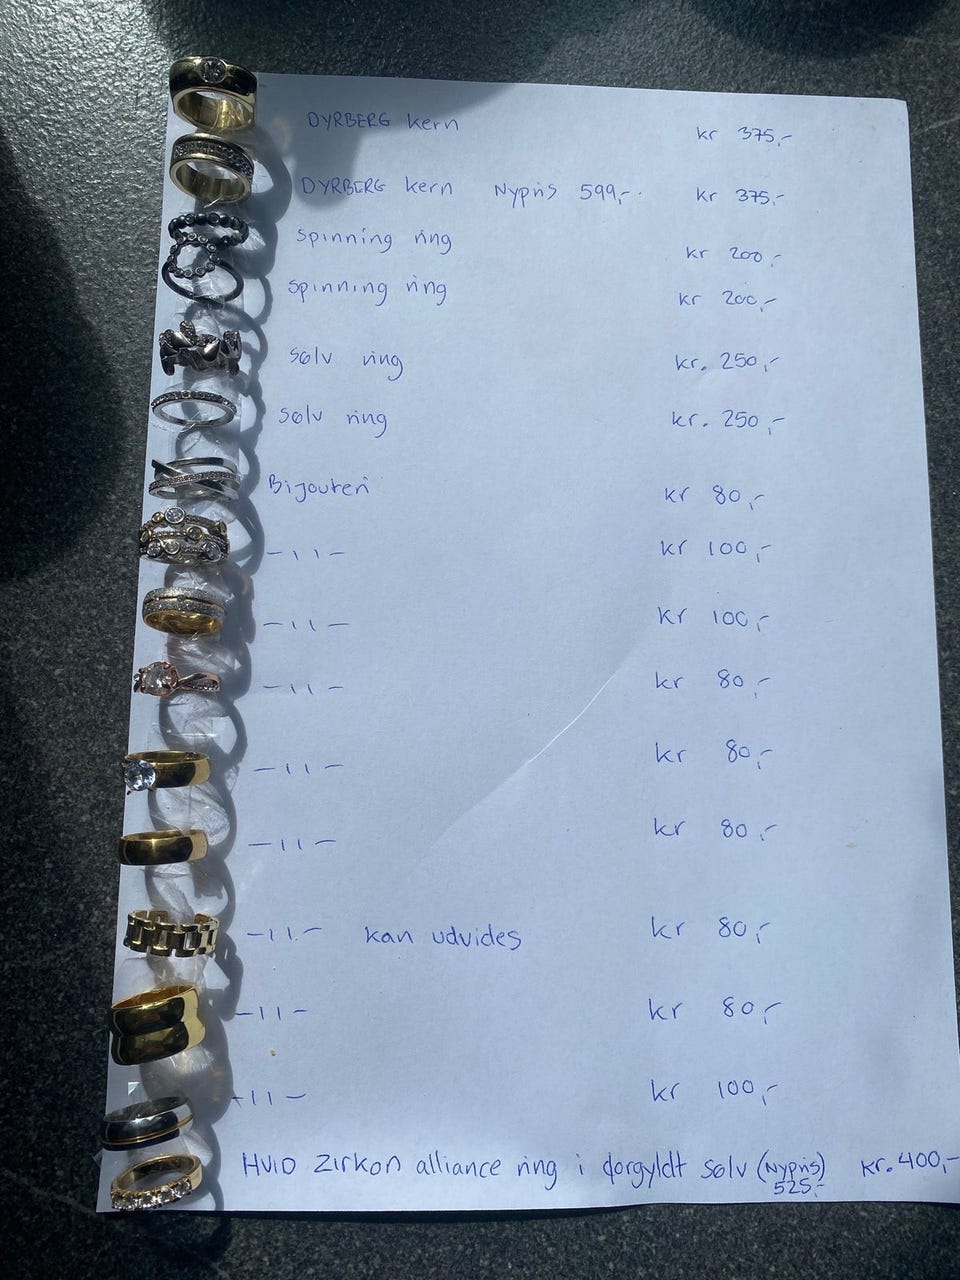 DYRBERG kern kr 375,-
DYRBERG kern Nypris 599,- kr 375,-
spinning ring kr 200,-
spinning ring kr 200,-
sølv ring kr. 250,-
sølv ring kr. 250,-
Bijouteri kr 80,-
-11- kr 100,-
-11- kr 100,-
-11- kr 80,-
-11- kr 80,-
-11- kr 80,-
-11- kan udvides kr 80,-
-11- kr 80,-
-11- kr 100,-
Hvid zirkon alliance ring i forgyldt sølv (Nypris) kr. 400,-
525,-